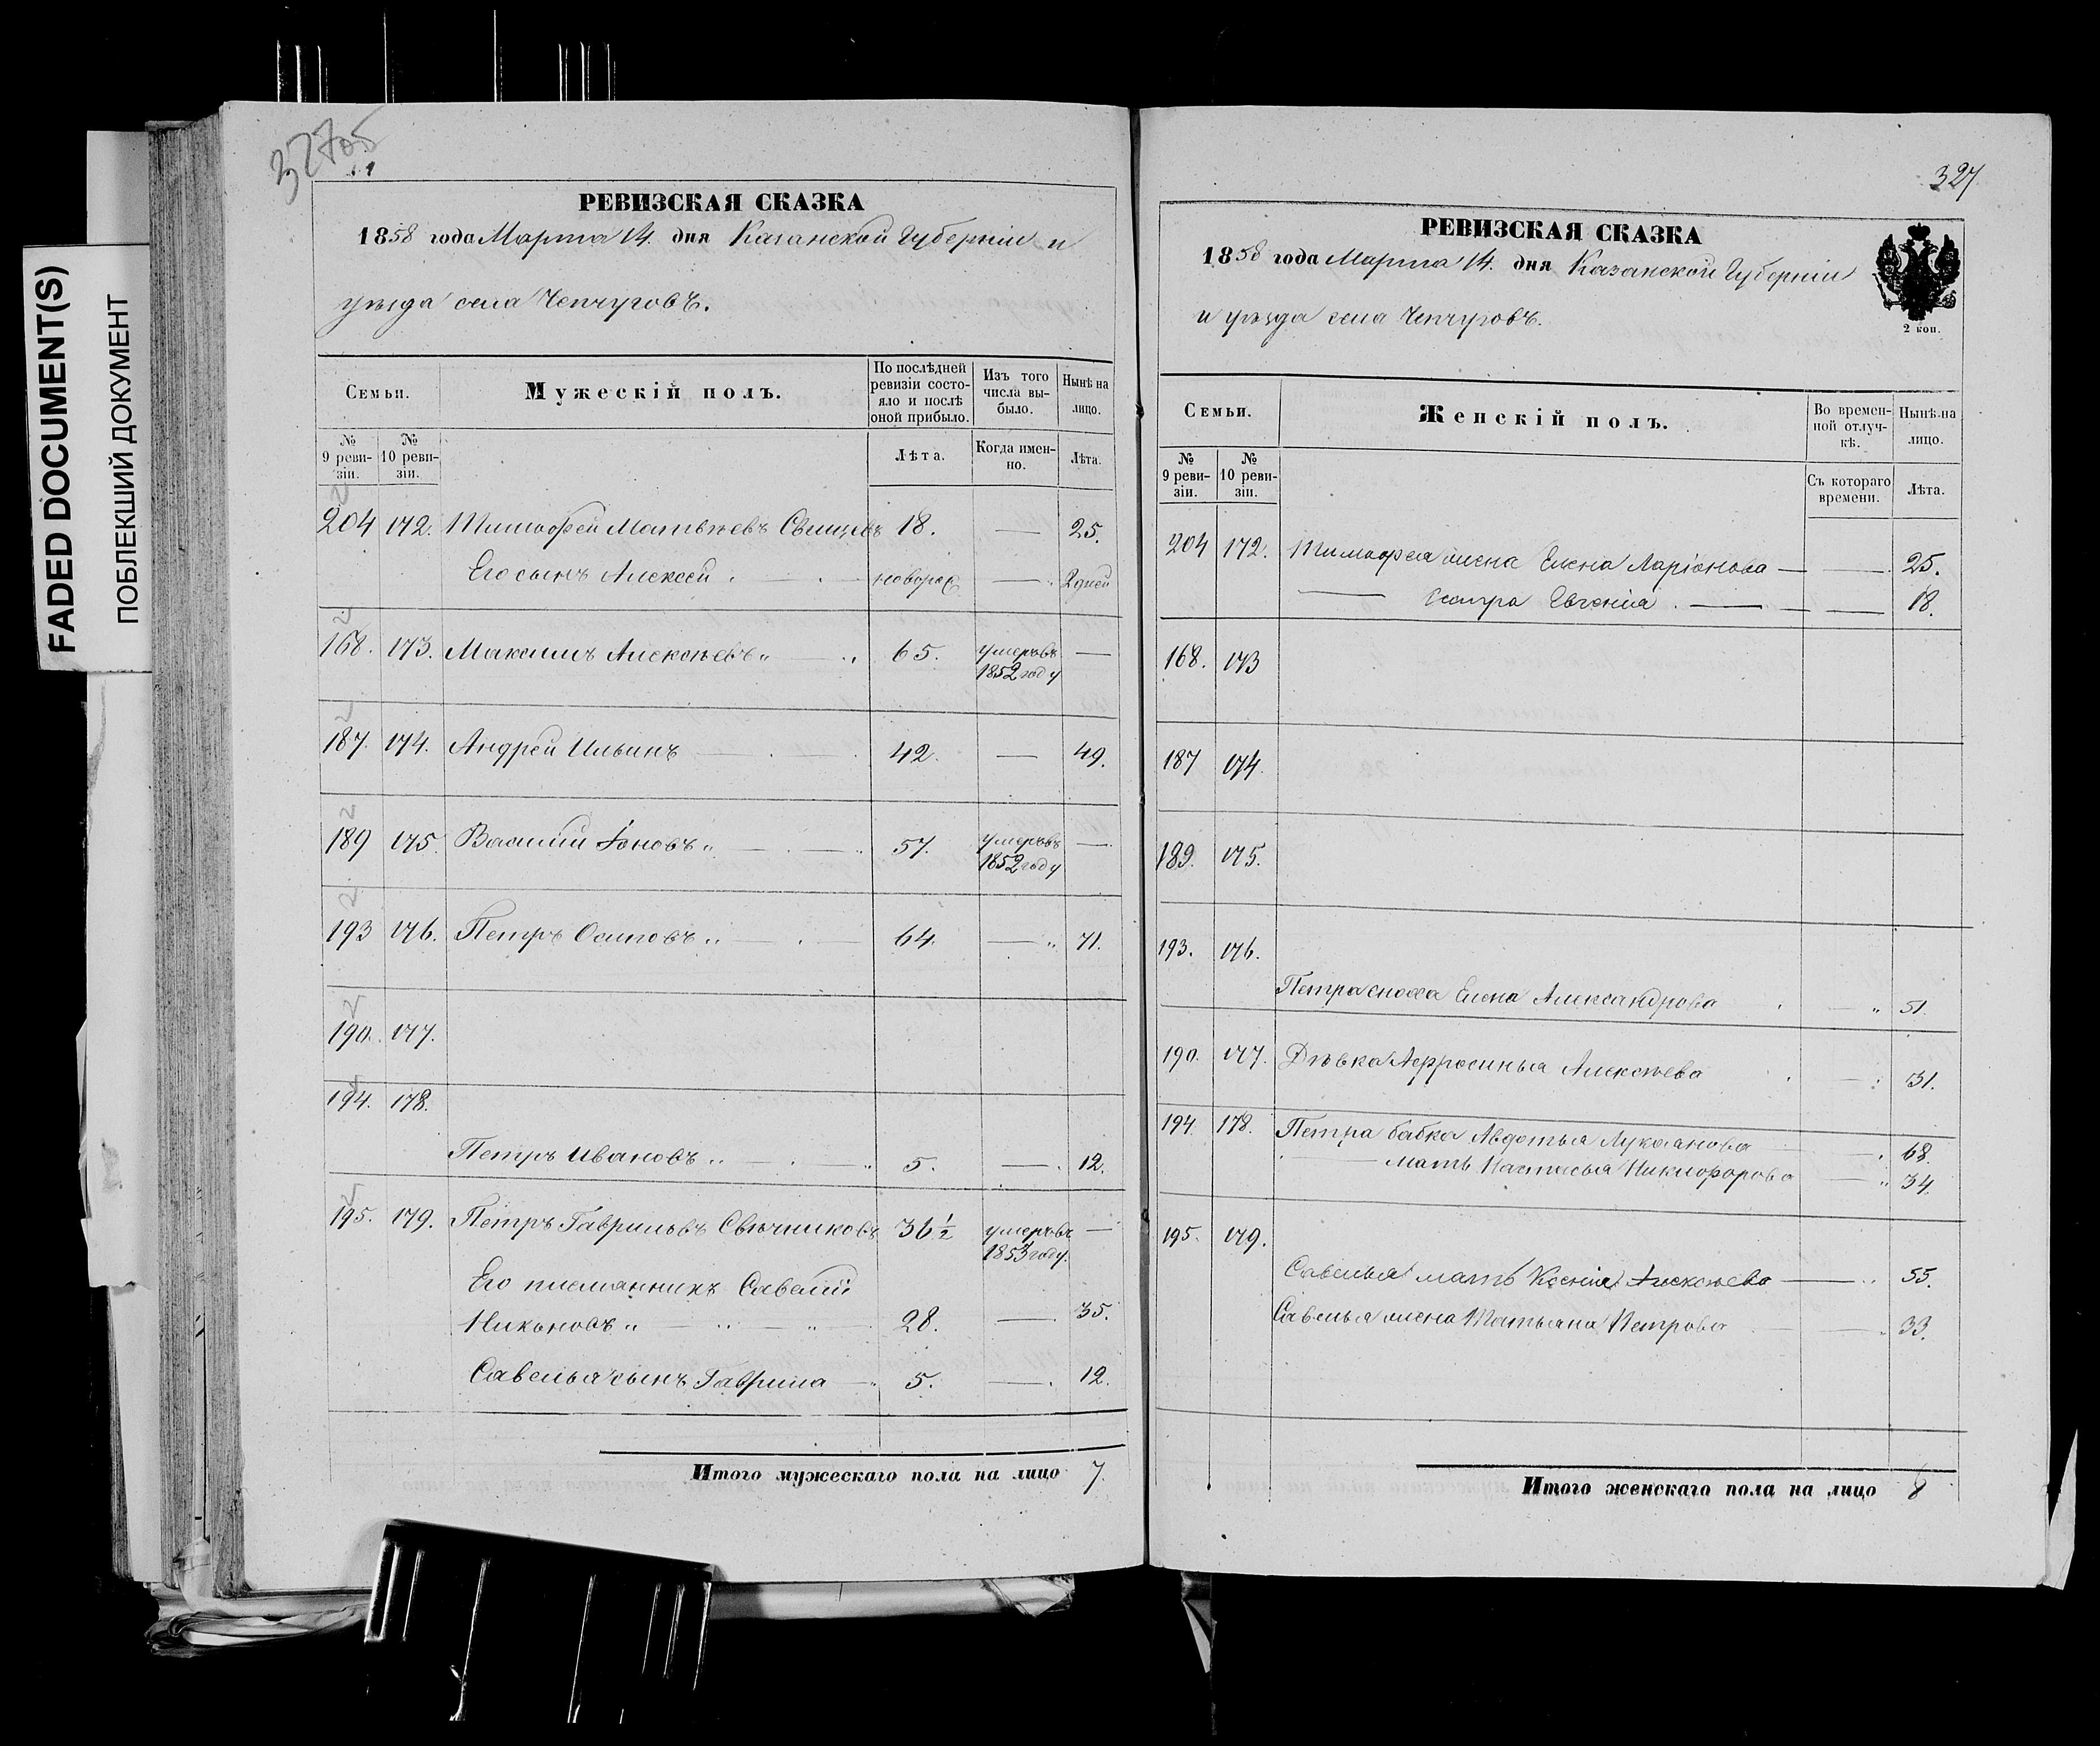 FADED DOCUMENT(S)
ПОБЛЕКШИЙ ДОКУМЕНТ
327об
РЕВИЗСКАЯ СКАЗКА
1858 года Марта 14. дня Казанской Губерніи и
уѣзда села Чепчуговъ.
Семьи. Мужескій полъ. По послѣдней ревизіи состояло и послѣ оной прибыло. Изъ того числа выбыло. Нынѣ на лицо.
№ 9 ревизіи. № 10 ревизіи. Лѣта. Когда именно. Лѣта.
204 172. Тимофей Матвѣевъ 18. — 25.
Его сынъ Алексей новорож — 2 дней
168. 173. Максимъ Алексѣевъ 65. умеръ въ 1852 году —
187. 174. Андрей Ильинъ 42. — 49.
189 175. Василій Іоновъ 57. умеръ въ 1852 году —
193 176. Петръ Осиповъ 64. — 71.
190. 177.
194. 178.
Петръ Ивановъ 5. — 12.
195. 179. Петръ Гавриловъ Свѣчниковъ 36 1/2 умеръ въ 1853 году. —
Его племянникъ Савелій
Никоновъ 28. — 35.
Савелья сынъ Гаврила 5. — 12.
Итого мужескаго пола на лицо 7.
327
РЕВИЗСКАЯ СКАЗКА
1858 года Марта 14. дня Казанской Губерніи
и уѣзда села Чепчуговъ.
2 коп.
Семьи. Женскій полъ. Во временной отлучкѣ. Нынѣ на лицо.
№ 9 ревизіи. № 10 ревизіи. Съ котораго времени. Лѣта.
204 172. Тимофея жена Елена Ларіонова — 25.
— сестра Евгенія — 18.
168. 173
187 174.
189. 175.
193. 176.
Петра сноха Елена Александрова 51.
190. 177. Дѣвка Афросинья Алексѣева 31.
194. 178. Петра бабка Авдотья Лукоанова 68.
— мать Настасья Никифорова 34.
195. 179.
Савелья мать Ксенія Алексѣева — 55.
Савелья жена Татьяна Петрова 33.
Итого женскаго пола на лицо 8